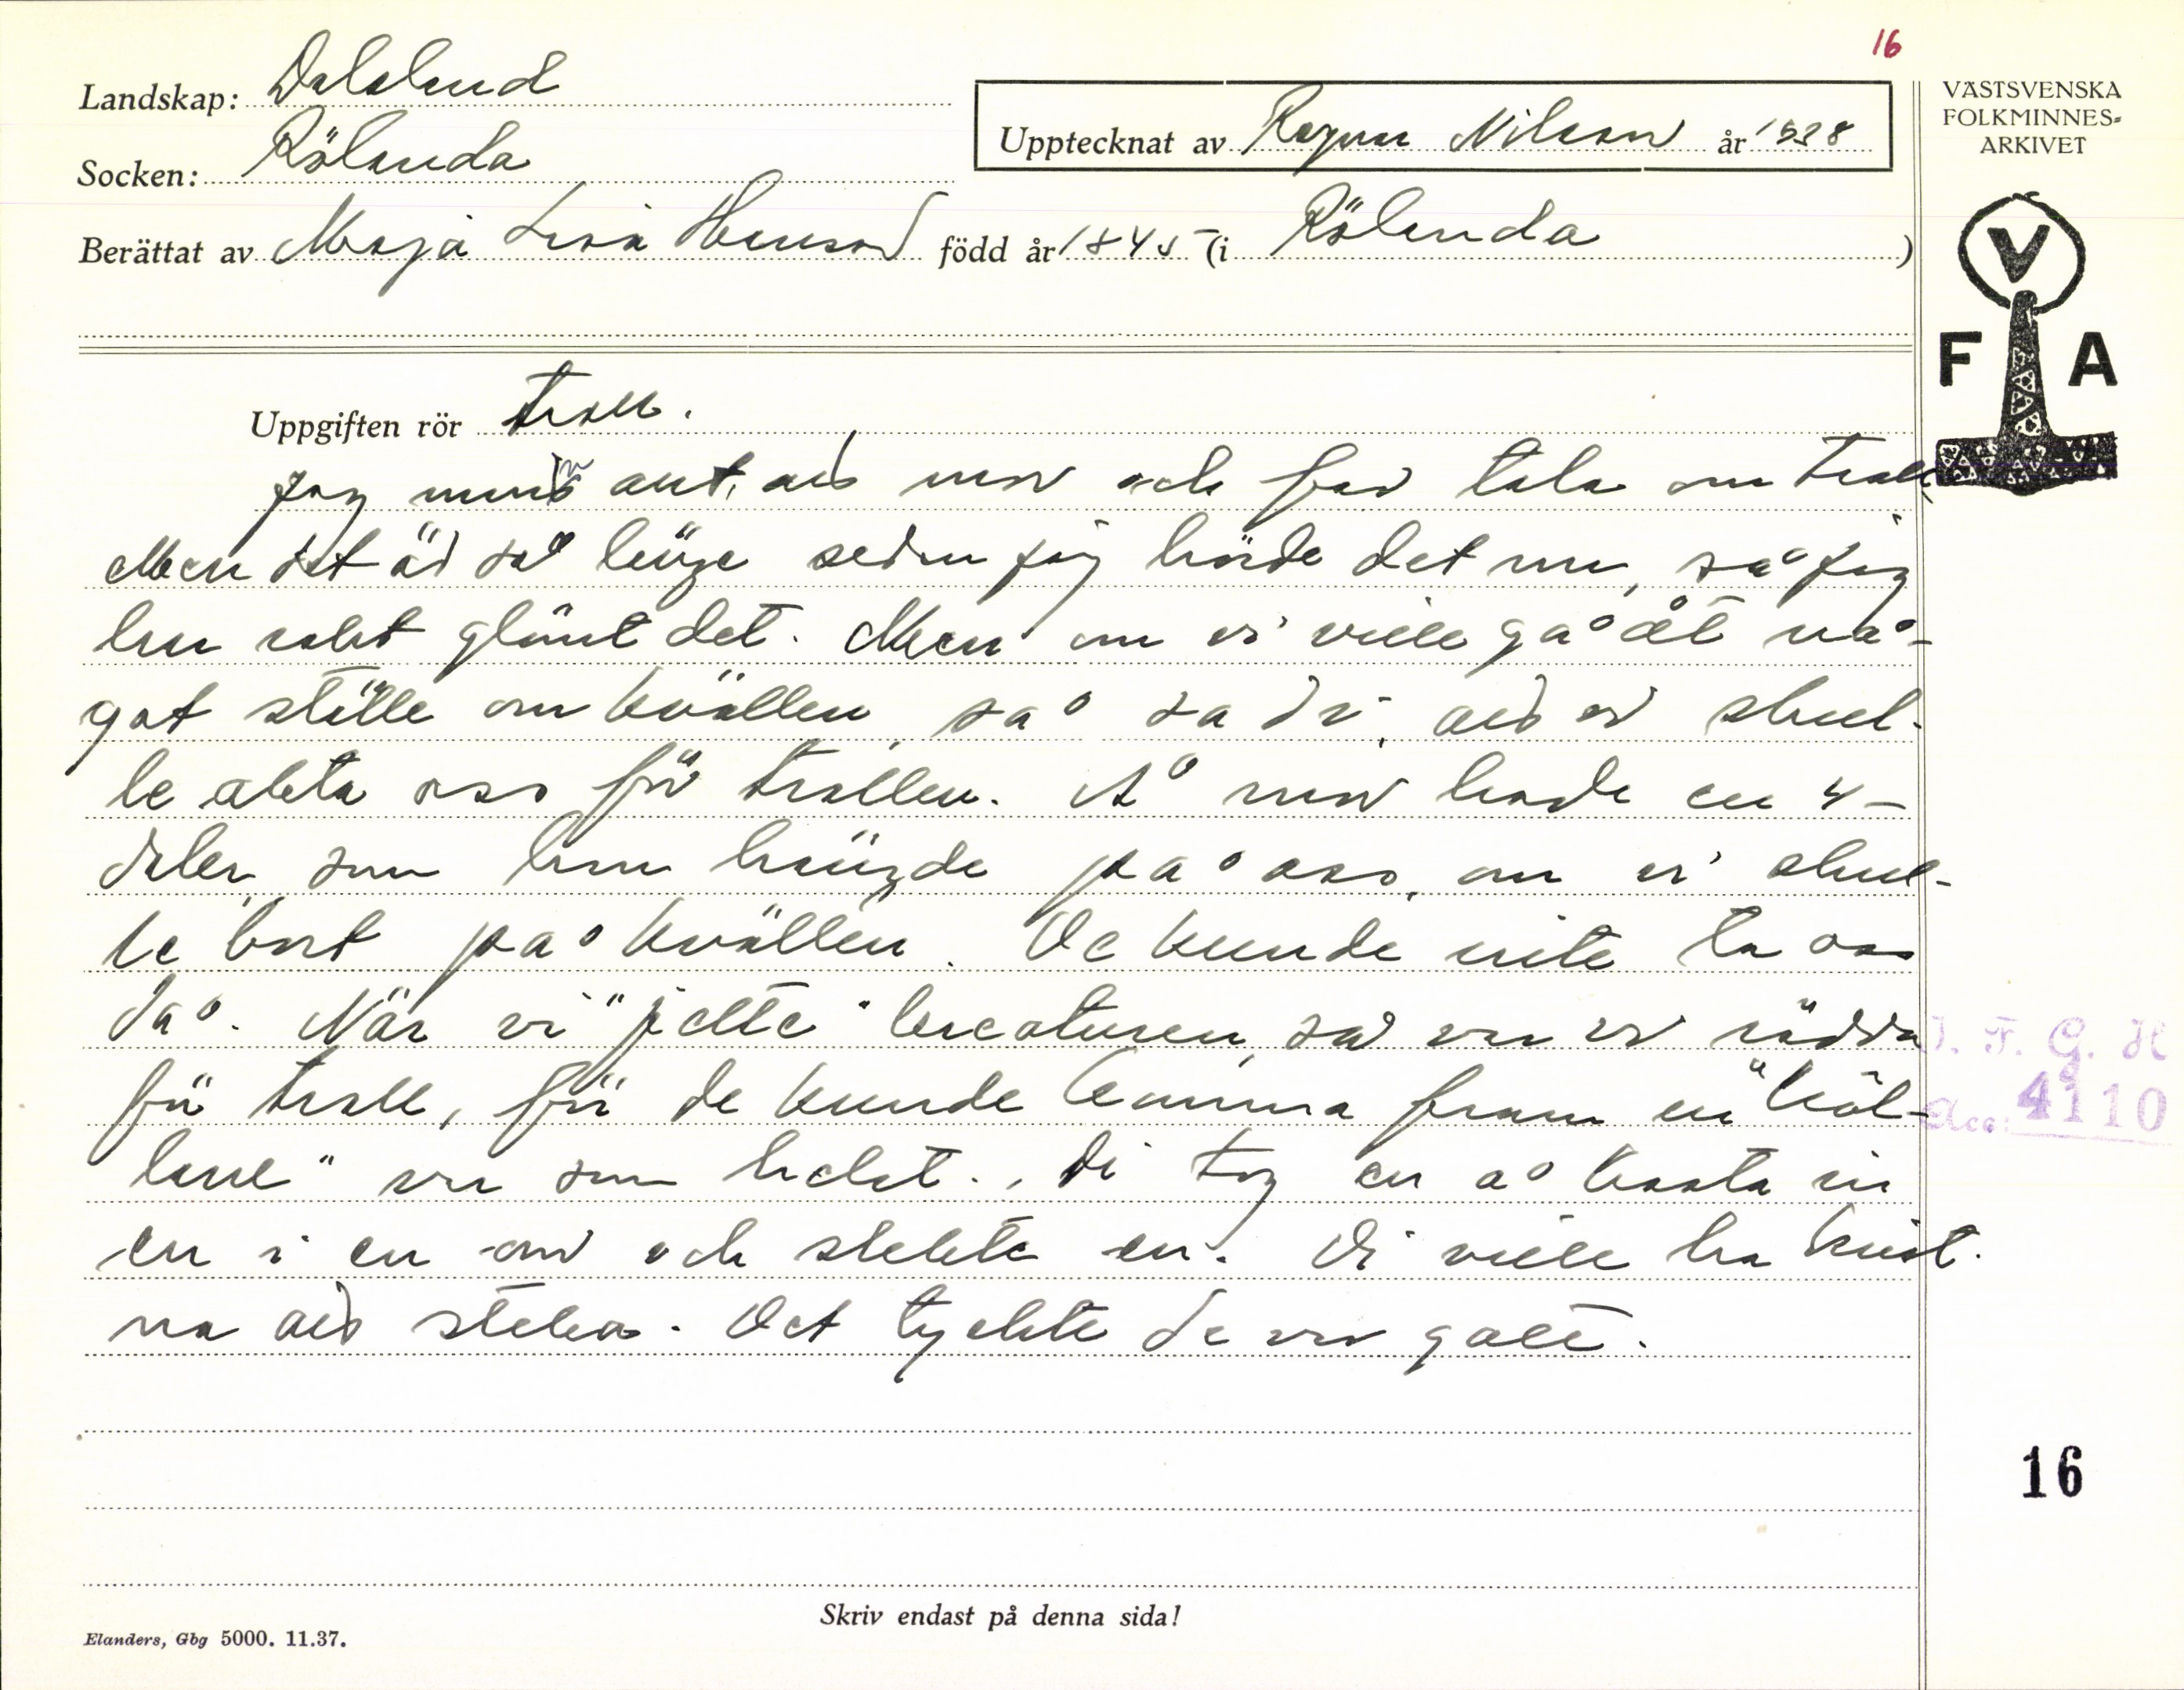 16
Landskap: Dalsland
Socken: Rölanda
Upptecknat av Ragnar Nilsson år 1938
Berättat av Maja Lisa Hansson född år 1845 (i Rölanda)
VÄSTSVENSKA
FOLKMINNES-
ARKIVET
V
F A
Uppgiften rör troll.
Jag minns att, mor och far tala om troll.
Men det är så länge sedan jag hörde det nu, så jag
har rakt glömt det. Men om vi ville gå åt nå-
got ställe om kvällen, så sa di, att vi skul-
le akta oss för trollen. Å mor hade en 4-
daler, som hon hängde på oss, om vi skul-
le bort på kvällen. De kunde inte ta oss
då. När vi "jette" kreaturen, så var vi rädda
för troll, för de kunde komma fram ur
var som helst. Di tog en å kasta in
en i en omn och stekte en. Di ville ha krist-
na att steka. Det tyckte de var gott.
J. F. G. H
Acc: 4110
16
Skriv endast på denna sida!
Elanders, Gbg 5000. 11.37.